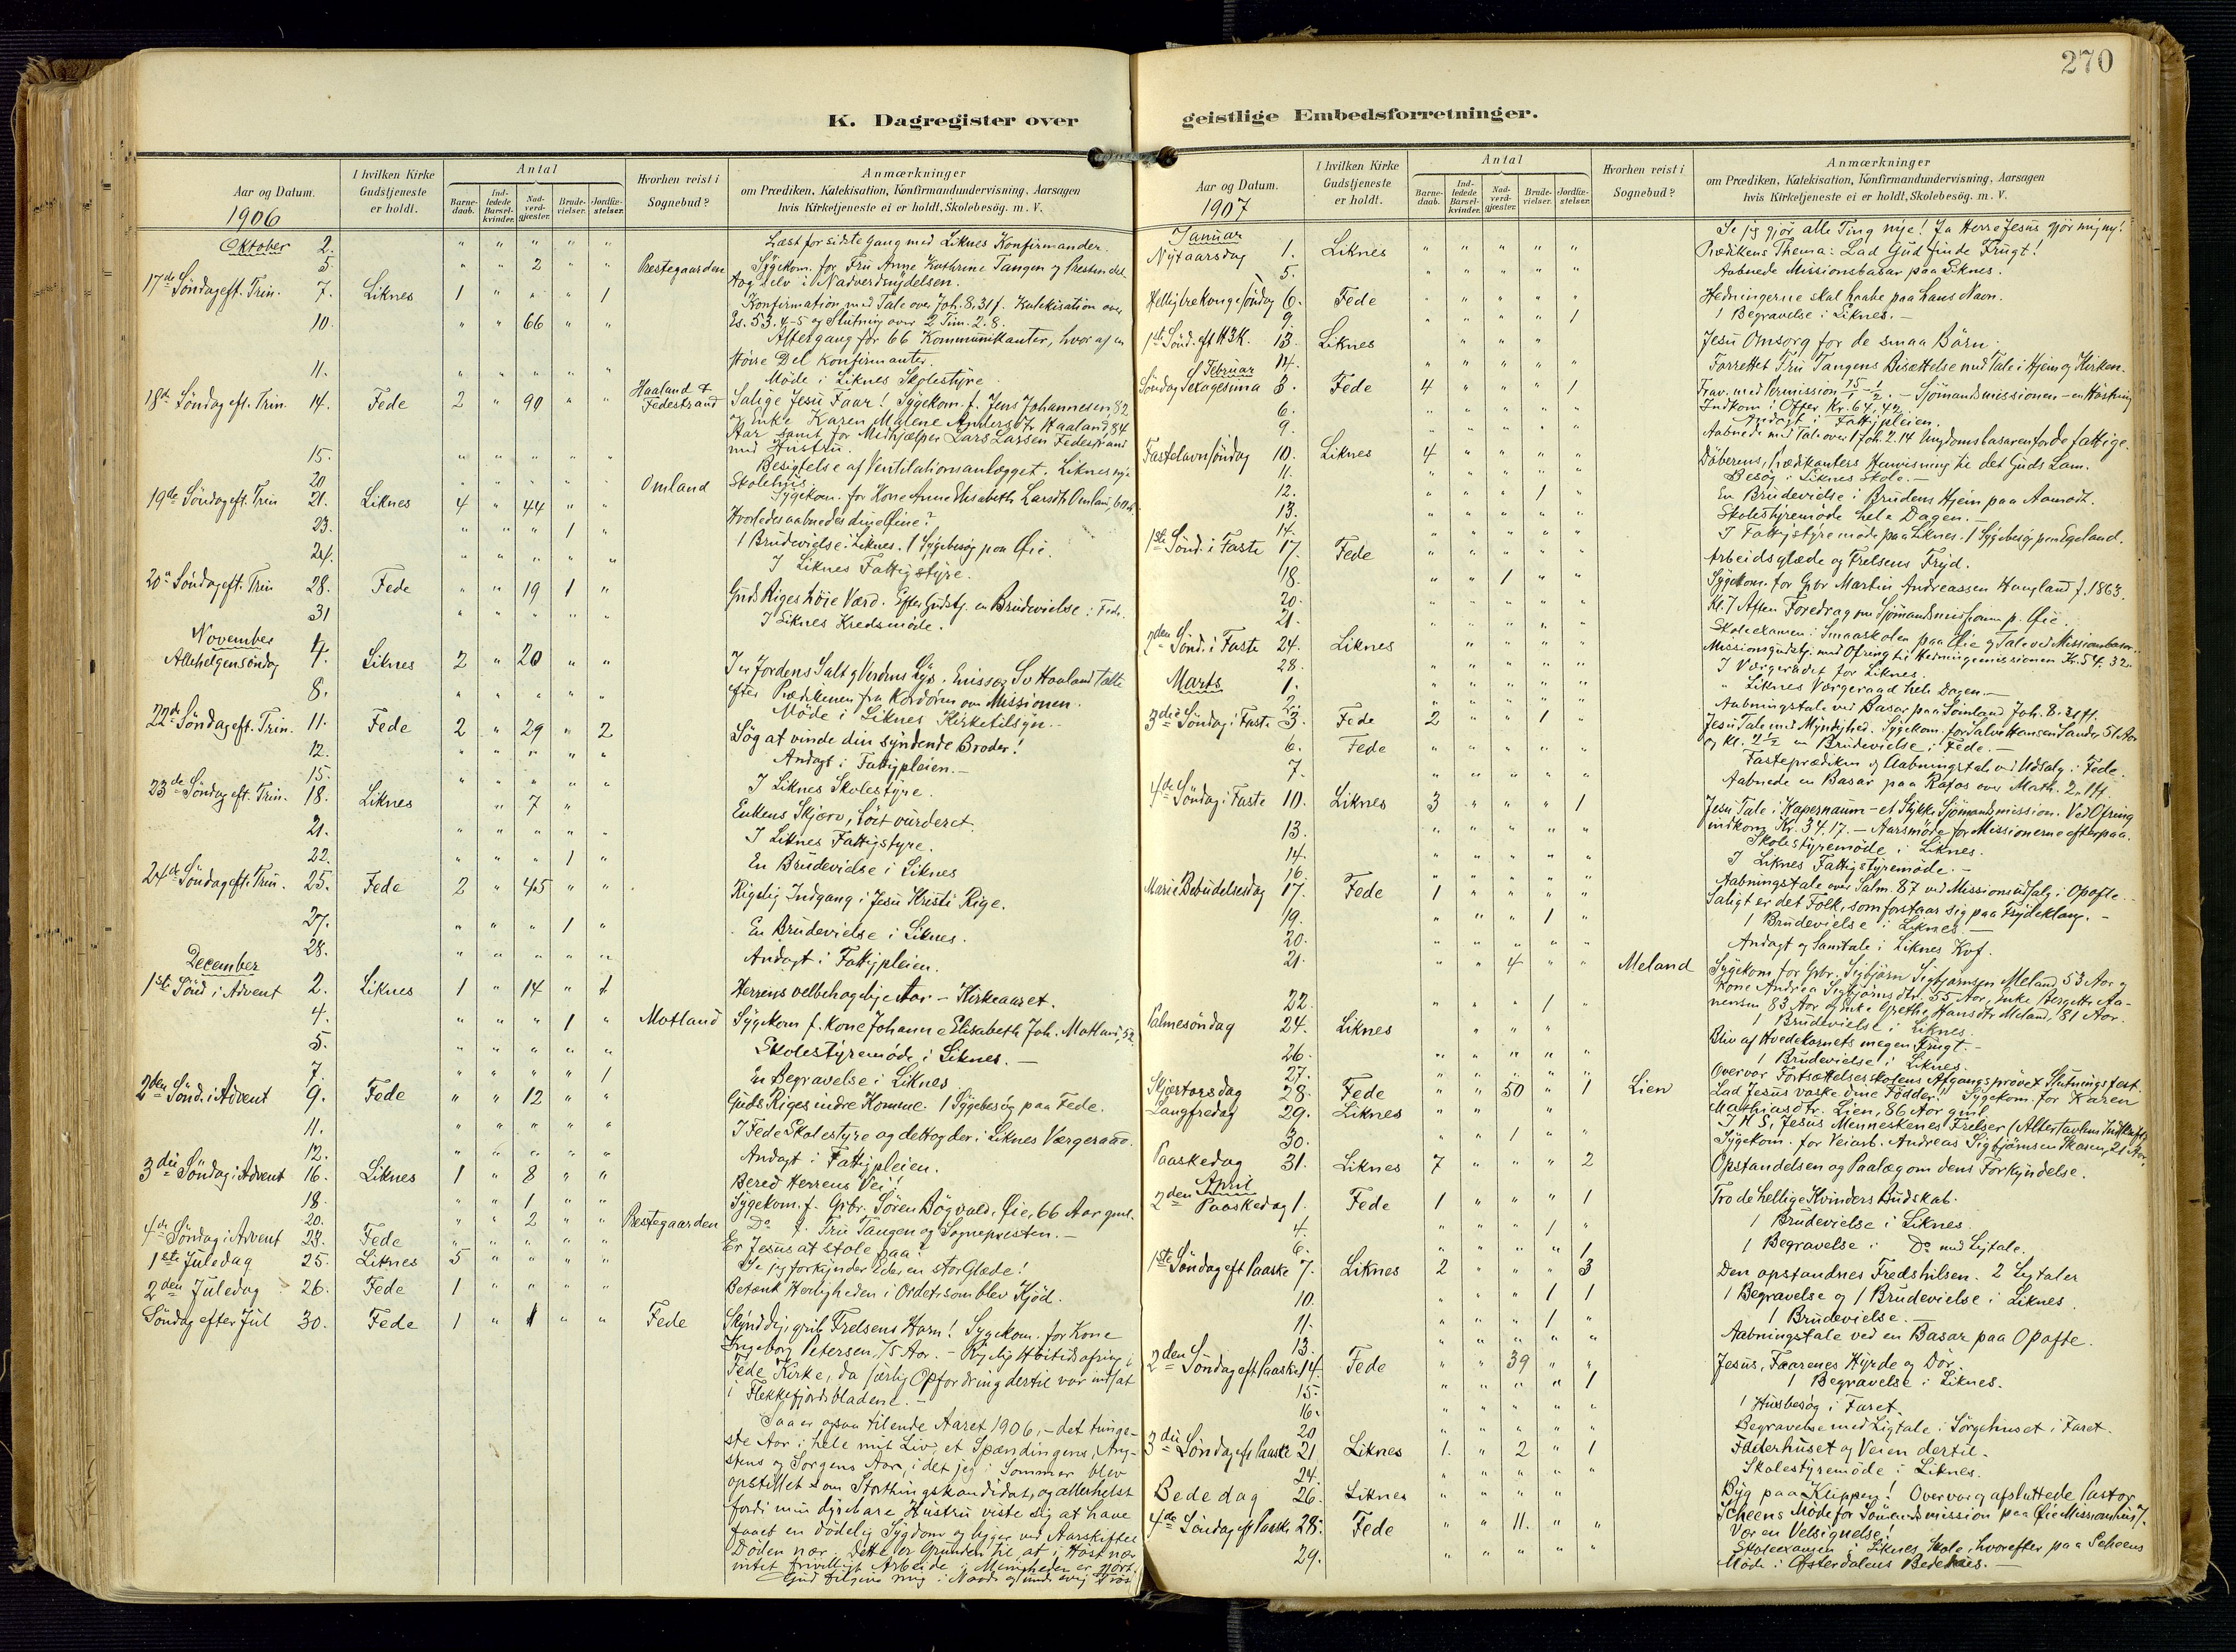 270
K. Dagregister over geistlige Embedsforretninger.
Aar og Datum. 1906
I hvilken Kirke Gudstjeneste er holdt.
Antal
Barnedaab. Indledede Barselkvinder. Nadverdgjæster. Brudevielser. Jordfæstelser.
Hvorhen reist i Sognebud?
Anmærkninger
om Prædiken, Katekisation, Konfirmandundervisning, Aarsagen
hvis Kirketjeneste ei er holdt, Skolebesög. m. V.
Oktober 2. " " " " " Læst for sidste Gang med Liknes Konfirmander.
5. " " 2 " " Prestegaarden Sygekom. for Fru Anne Kathrine Tangen og Presten del
tog selv i Nadverdnydelsen.
17de Søndag eft. Trin. 7. Liknes 1 " " " 1 Konfirmation med Tale over Joh. 8.31f. Katekisation over
Es. 53.4-5 og Slutning over 2 Tim. 2.8.
10. " " 66 " " Altergang for 66 Kommunikanter, hvoraf en
större Del Konfirmanter.
11. " " " " " Möde i Liknes Skolestyre
18de Søndag eft. Trin. 14. Fede 2 " 99 " " Haaland & Fedestrand Salige Jesu Faar! Sygekom. f. Jens Johannesen 82
Enke Karen Malene Andersdtr Haaland, 84
Aar samt for Medhjælper Lars Larsen Fedestrand
med Hustru.
15. " " " " " Besigtelse af Ventilationsanlægget i Liknes nye
Skolehus.
20 " " " " " Omland Sygekom. for Kone Anne Elisabeth Larsdtr Omland, 60
19de Søndag eft. Trin 21. Liknes 4 " 44 " " Hvorledes aabnedes dine Öine?
23. " " " 1 " 1 Brudevielse i Liknes. 1 Sygebesög paa Öie.
24. " " " " " I Liknes Fattigstyre.
20de Søndag eft. Trin 28. Fede " " 19 1 " Guds Riges höie Værd. Efter Gudstj. en Brudevielse i Fede.
31 " " " " " I Liknes Kredsmöde.
November
Allehelgensöndag 4. Liknes 2 " 20 " " I er Jordens Salt og Verdens Lys. Emissær Sv. Haaland talte
efter Prædikenen fra Kordören om Missionen.
8. " " " " " Möde i Liknes Kirketilsyn.
22de Söndag eft. Trin. 11. Fede 2 " 29 " 2 Søg at vinde din syndende Broder!
12. " " " " " Andagt i Fattigpleien.
15. " " " " " I Liknes Skolestyre.
23de Söndag eft. Trin. 18. Liknes " 7 " Enkens Skjærv, höit vurderet.
21. " " " " " I Liknes Fattigstyre.
22. " " " 1 " En Brudevielse i Liknes
24de Söndag eft. Trin. 25. Fede 2 " 45 " " Rigelig Indgang i Jesu Kristi Rige.
27. " " " 1 " En Brudevielse i Liknes.
28. " " " " " Andagt i Fattigpleien.
December
1ste Sönd i Advent 2. Liknes 1 " 14 " 1 Herrens velbehagelige Aar – Kirkeaaret.
4. " " " 1 " Motland Sygekom f. Kone Johanne Elisabeth Joh. Motland, 52.
5. " " " " " Skolestyremöde i Liknes. –
7. " " " " 1 En Begravelse i Liknes
2den Sönd. i Advent 9. Fede " " 12 " " Guds Riges indre Komme. 1 Sygebesög paa Fede.
11. " " " " " I Fede Skolestyre og deltog der i Liknes Værgeraad.
12. " " " " " Andagt i Fattigpleien.
3die Söndag i Advent 16. Liknes 1 " 8 " " Bered Herrens Vei!
18. " " 1 " " Sygekom. f. Grbr. Sören Bögvald, Öie, 66 Aar gml.
20. " " 2 " " Prestegaarden Do f. Fru Tangen og Sognepresten. –
4de Söndag i Advent 23. Fede " " " " " Er Jesus at stole paa?
1ste Juledag 25. Liknes 5 " " " " Se jeg forkynder Eder en stor Glæde!
2den Juledag 26. Fede 1 " " " " Betænk Herligheden i Ordet, som blev Kjöd.
Söndag efter Jul 30. Fede 1 " 1 " " Fede Skynd dig, grib Frelsens Horn! Sygekom. for Kone
Ingeborg Petersen, 75 Aar. –
Fede Kirke, da særlig Opfordring dertil var indsat
i Flekkefjordsbladene. –
Saa er ogsaa tilende Aaret 1906, – det tunge-
ste Aar i hele mit Liv, et Spændingens, Ang-
stens og Sorgens Aar, idet jeg i Sommer blev
opstillet som Storthingskandidat, og allerhelst
fordi min dyrebare Hustru viste sig at have
faaet en dödelig Sygdom og ligger ved Aarskiftet
Döden nær. Dette er Grunden til at i Höst nær
intet frivilligt Arbeide i Menigheden er gjort.
Gud tilgive mig i Naade og unde evig Tröst
Aar og Datum. 1907
I hvilken Kirke Gudstjeneste er holdt.
Antal
Barnedaab. Indledede Barselkvinder. Nadverdgjæster. Brudevielser. Jordfæstelser.
Hvorhen reist i Sognebud?
Anmærkninger
om Prædiken, Katekisation, Konfirmandundervisning, Aarsagen
hvis Kirketjeneste ei er holdt, Skolebesög. m. V.
Januar Se jeg gjör alle Ting nye! Ja Herre Jesus gjör mig ny!
Nytaarsdag 1. Liknes " " " " " Prædikens Thema: Lad Gud finde Frugt!
5. " " " " " Aabnede Missionsbasar paa Liknes.
Hellig tre Konge söndag 6. Fede " " " " " Hedningerne skal haabe paa hans Navn.
9 " " " " 1 1 Begravelse i Liknes. –
1ste Sönd. eft. H3K. 13. Liknes " " " " Jesu Omsorg for de smaa Börn.
14. " " " " " Forrettet Fru Tangens Bisættelse med Tale i Hjem og Kirken.
Februar
Söndag Sexagesima 3. Fede 4 " " " 1 Frav. med Permission 15/1 – 1/2. – Sjömandsmissionen – en Höstning
Indkom i Offer Kr. 64,42.
6. " " " " " Andagt i Fattigpleien.
9. " " " " " Aabnede med Tale over 1 Joh. 2.14 Ungdomsbasaren for de fattige.
Fastelavnsöndag 10. Liknes 4 " " " " Döberens, Prædikanters Henvisning til det Guds Lam.
11. " " " " " Besög i Liknes Skole. –
12. " " " 1 " En Brudevielse i Brudens Hjem paa Aamodt.
13. " " " " " Skolestyremöde hele Dagen. –
14. " " " " " I Fattigstyremöde paa Liknes. 1 Sygebesög paa Egeland.
1ste Sönd. i Faste 17. Fede " " " " " Arbeidsglæde og Frelsens Fryd.
18. " " 1 " " Sygekom. for Grbr Martin Andreassen Haugland f. 1863.
20. " " " " " Kl. 7 Aften Foredrag om Sjömandsmissionen p. Öie.
21. " " " " " Skoleexamen i Smaaskolen paa Öie og Tale ved Missionsbasar.
2den Sönd. i Faste 24. Liknes " " " " Missionsgudstj. med Ofring til Hedningemissionen Kr. 54.32.
28. " " " " " I Værgeraadet for Liknes.
Marts 1. " " " " " " Liknes Værgeraad hele Dagen. –
2. " " " " " Aabningstale ved Basar paa Sönland Joh. 8.31ff.
3die Söndag i Faste 3. Fede 2 " " 1 " Jesu Tale med Myndighed. Sygekom. for Salve Hansen Sande, 51 Aar
og Kl. 2 1/2 en Brudevielse i Fede. –
6. Fede " " " " " Fasteprædiken og Aabningstale ved Udsalg i Fede.
7. " " " " " Aabnede en Basar paa Rafos over Math. 2.1ff.
4de Söndag i Faste 10. Liknes 3 " " " 1 Jesu Tale i Kapernaum – et Stykke Sjömandsmission. Ved Ofring
indkom Kr. 34.17. – Aarsmöde for Missionerne efterpaa.
13. " " " " " Skolestyremöde i Liknes.
14. " " " " " I Liknes Fattigstyremöde. –
16. " " " " " Aabningstale over Salm. 87 ved Missionsudsalg i Opofte.
Mariæ Bebudelsesdag 17. Fede 1 " " " " Saligt er det Folk, som forstaar sig paa Frydeklang. –
19. " " " 1 " 1 Brudevielse i Liknes. –
20. " " " " " Andagt og Samtale i Liknes
21. " " 4 " " Meland Sygekom for Grbr. Sigbjörn Sigbjörnsen Meland 53 Aar og
Kone Andrea Sigbjörnsdtr. 55 Aar, Enke Bergette Aa-
nensen 83 Aar og Enke Grethe Hansdtr Meland, 81 Aar.
22. " " " 1 " 1 Brudevielse i Liknes.
Palmesöndag 24. Liknes " " " Bliv af Hvedekornets megen Frugt. –
26. " " " " " 1 Brudevielse i Liknes.
27. " " " " " Overvar Fortsættelsesskolens Afgangspröve & Slutningsfest.
Skjærtorsdag 28. Fede " " 50 " 1 Lien Lad Jesus vaske dine Födder! Sygekom. for Karen
Mathiasdtr. Lien, 86 Aar gml.
Langfredag 29. Liknes " " " " I H S, Jesus Menneskenes Frelser (Altertavlens Indskrift)
30. " " 1 " " Sygekom. for Veiarb. Andreas Sigbjörnsen Skaren, 21 Aar.
Paaskedag 31. Liknes 7 " " " 2 Opstandelsen og Paalæg om dens Forkyndelse.
April
2den Paaskedag 1. Fede 1 " " " 1 Tro de hellige Kvinders Budskab.
4. " " " 1 " 1 Brudevielse i Liknes.
6. " " " " 1 1 Begravelse i Do med Ligtale.
1ste Söndag eft Paaske 7. Liknes 2 " " " 3 Den opstandnes Fredshilsen. 2 Ligtaler
10. " " " 1 1 1 Begravelse og 1 Brudevielse i Liknes.
11. " " " 1 " 1 Brudevielse. –
13. " " " " " Aabningstale ved en Basar paa Opofte.
2den Söndag eft Paaske 14. Fede " " 39 " " Jesus, Faarenes Hyrde og Dör.
15. " " " " 1 1 Begravelse i Liknes.
16. " " " " " 1 Husbesög i Faret.
20 " " " " " Begravelse med Ligtale i Sörgehuset i Faret.
3die Söndag eft Paaske 21 Liknes 1. " 2 " 1 Faderhuset og Veien dertil.
24. " " " " " Skolestyremöde i Liknes.
Bededag 26. Liknes " " " " " Byg paa Klippen! Overvar og afsluttede Pastor
Scheens Möde for Sömandsmission paa Öie Missionshus.
4de Söndag eft Paaske 28. Fede " " 11. " " Vær en Velsignelse!
29. " " " " " Skoleexamen i Liknes Skole, hvorefter paa Scheens
Möde i Østerdalens Bedehus. –